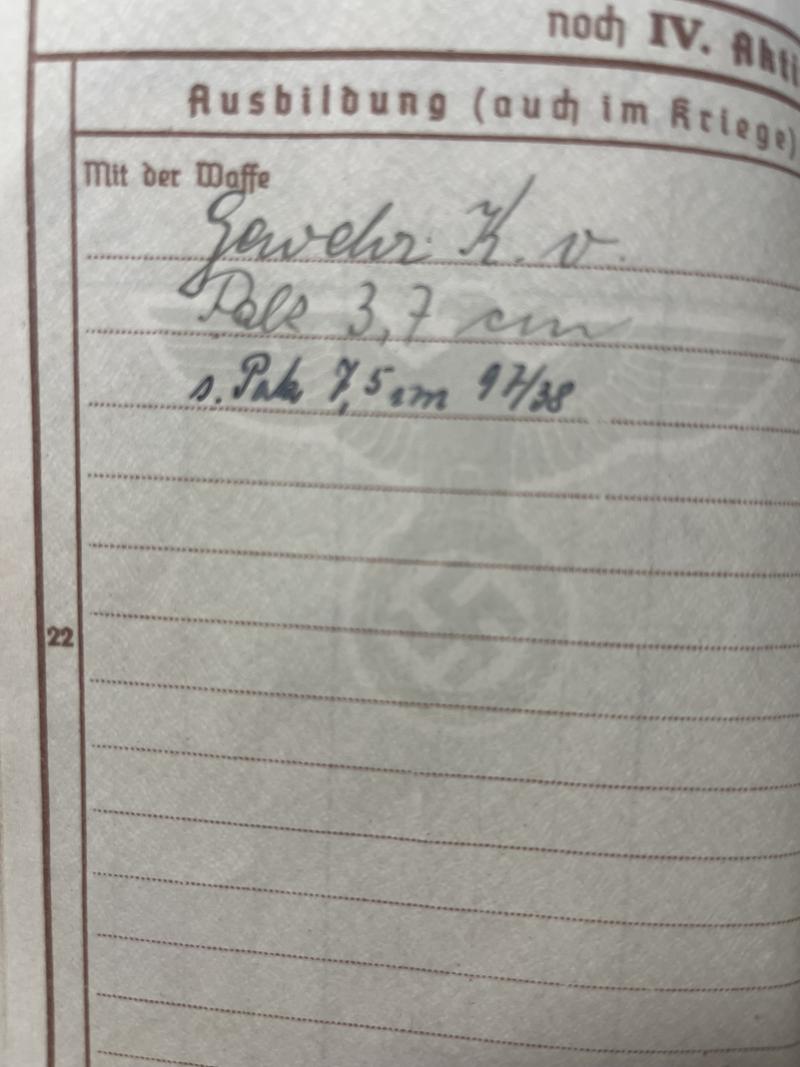 noch IV. Akti
Ausbildung (auch im Kriege)
Mit der Waffe
Gewehr K. v.
Pak 3,7 cm
s. Pak 7,5 cm 97/38
22